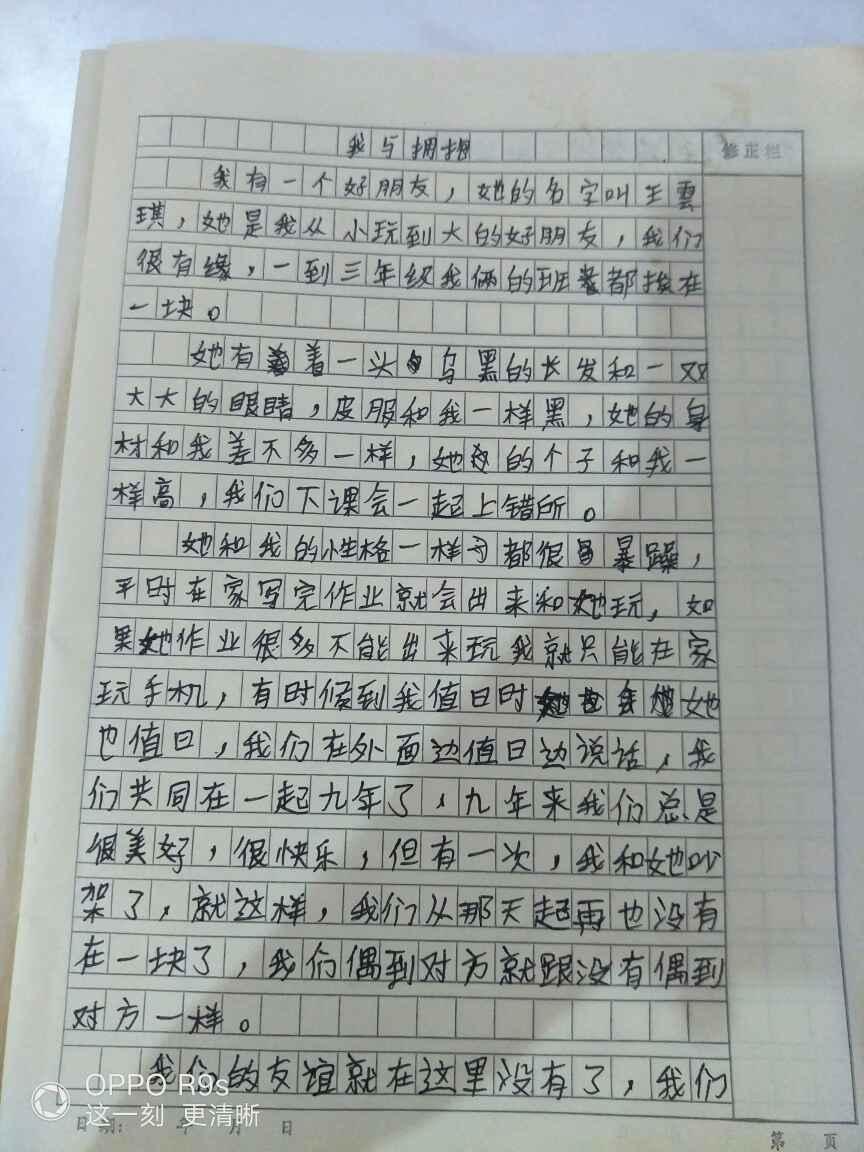 我与拥抱
修正栏
我有一个好朋友，她的名字叫王雲
琪，她是我从小玩到大的好朋友，我们
很有缘，一到三年级我俩的班都挨在
一块。
她有着一头乌黑的长发和一双
大大的眼睛，皮服和我一样黑，她的身
材和我差不多一样，她的个子和我一
样高，我们下课会一起上错所。
她和我的性格一样都很暴躁，
平时在家写完作业就会出来和她玩，如
果她作业很多不能出来玩我就只能在家
玩手机，有时候到我值日时她
也值日，我们在外面边值日边说话，我
们共同在一起九年了，九年来我们总是
很美好，很快乐，但有一次，我和她吵
架了，就这样，我们从那天起再也没有
在一块了，我们偶到对方就跟没有偶到
对方一样。
我们的友谊就在这里没有了，我们
OPPO R9s
这一刻 更清晰
日期： 年 月 日
第 页